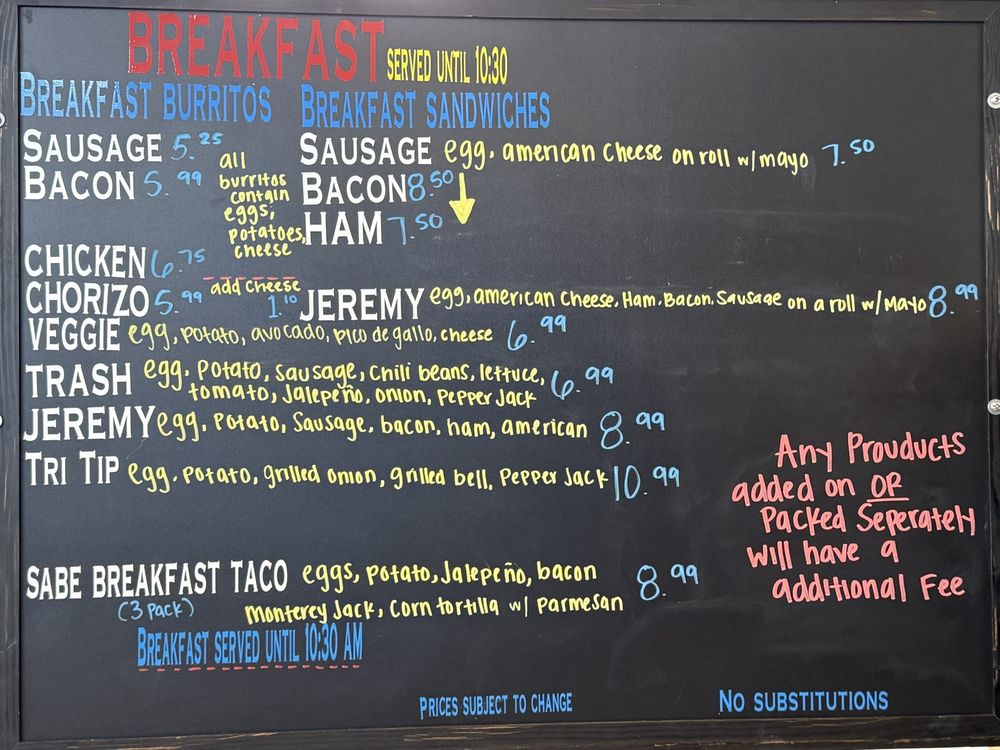 BREAKFAST SERVED UNTIL 10:30
BREAKFAST BURRITOS
SAUSAGE 5.25
BACON 5.99
all
burritos
contain
eggs,
potatoes,
cheese
CHICKEN 6.75
add cheese
1.10
CHORIZO 5.99
BREAKFAST SANDWICHES
SAUSAGE egg, american cheese on roll w/mayo 7.50
BACON 8.50
HAM 7.50
JEREMY egg, american cheese, Ham, Bacon, Sausage on a roll w/Mayo 8.99
VEGGIE egg, potato, avocado, pico de gallo, cheese 6.99
TRASH egg, potato, sausage, chili beans, lettuce, 6.99
tomato, Jalepeño, onion, Pepper Jack
JEREMY egg, Potato, Sausage, bacon, ham, american 8.99
TRI TIP egg, Potato, grilled onion, grilled bell, Pepper Jack 10.99
Any Prouducts
added on OR
Packed Seperately
will have a
additional Fee
SABE BREAKFAST TACO eggs, potato, Jalepeño, bacon 8.99
(3 Pack) Monterey Jack, Corn tortilla w/ Parmesan
BREAKFAST SERVED UNTIL 10:30 AM
PRICES SUBJECT TO CHANGE
NO SUBSTITUTIONS